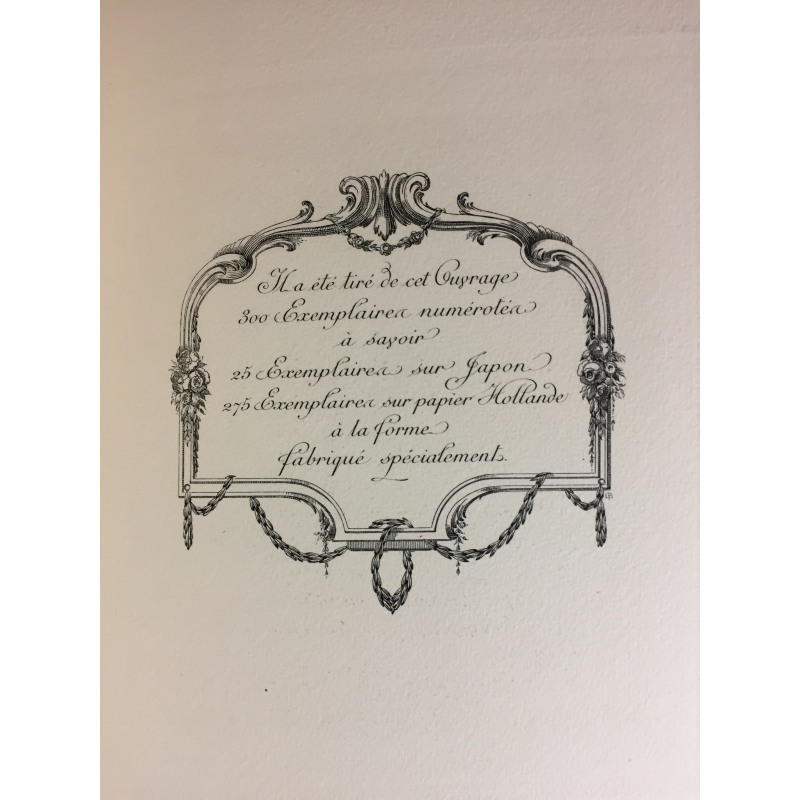 Il a été tiré de cet Ouvrage
300 Exemplaires numérotés
à savoir
25 Exemplaires sur Japon
275 Exemplaires sur papier Hollande
à la forme
fabriqué spécialement.